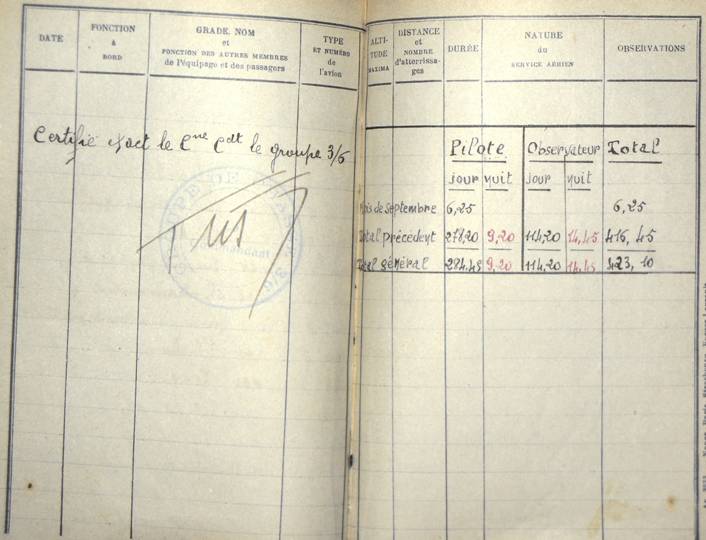 DATE
FONCTION
à
BORD
GRADE, NOM
et
FONCTION DES AUTRES MEMBRES
de l'équipage et des passagers
TYPE
ET NUMÉRO
de
l'avion
ALTI-
TUDE
MAXIMA
DISTANCE
et
NOMBRE
d'atterrissa-
ges
DURÉE
NATURE
du
SERVICE AÉRIEN
OBSERVATIONS
Certifié exact le Cne Cdt le groupe 3/6
Pilote Observateur Total
jour nuit jour nuit
Mois de Septembre 6,25 6,25
Total précédent 278,20 9,20 114,20 14,45 416,45
Total général 284,45 9,20 114,20 14,45 423,10